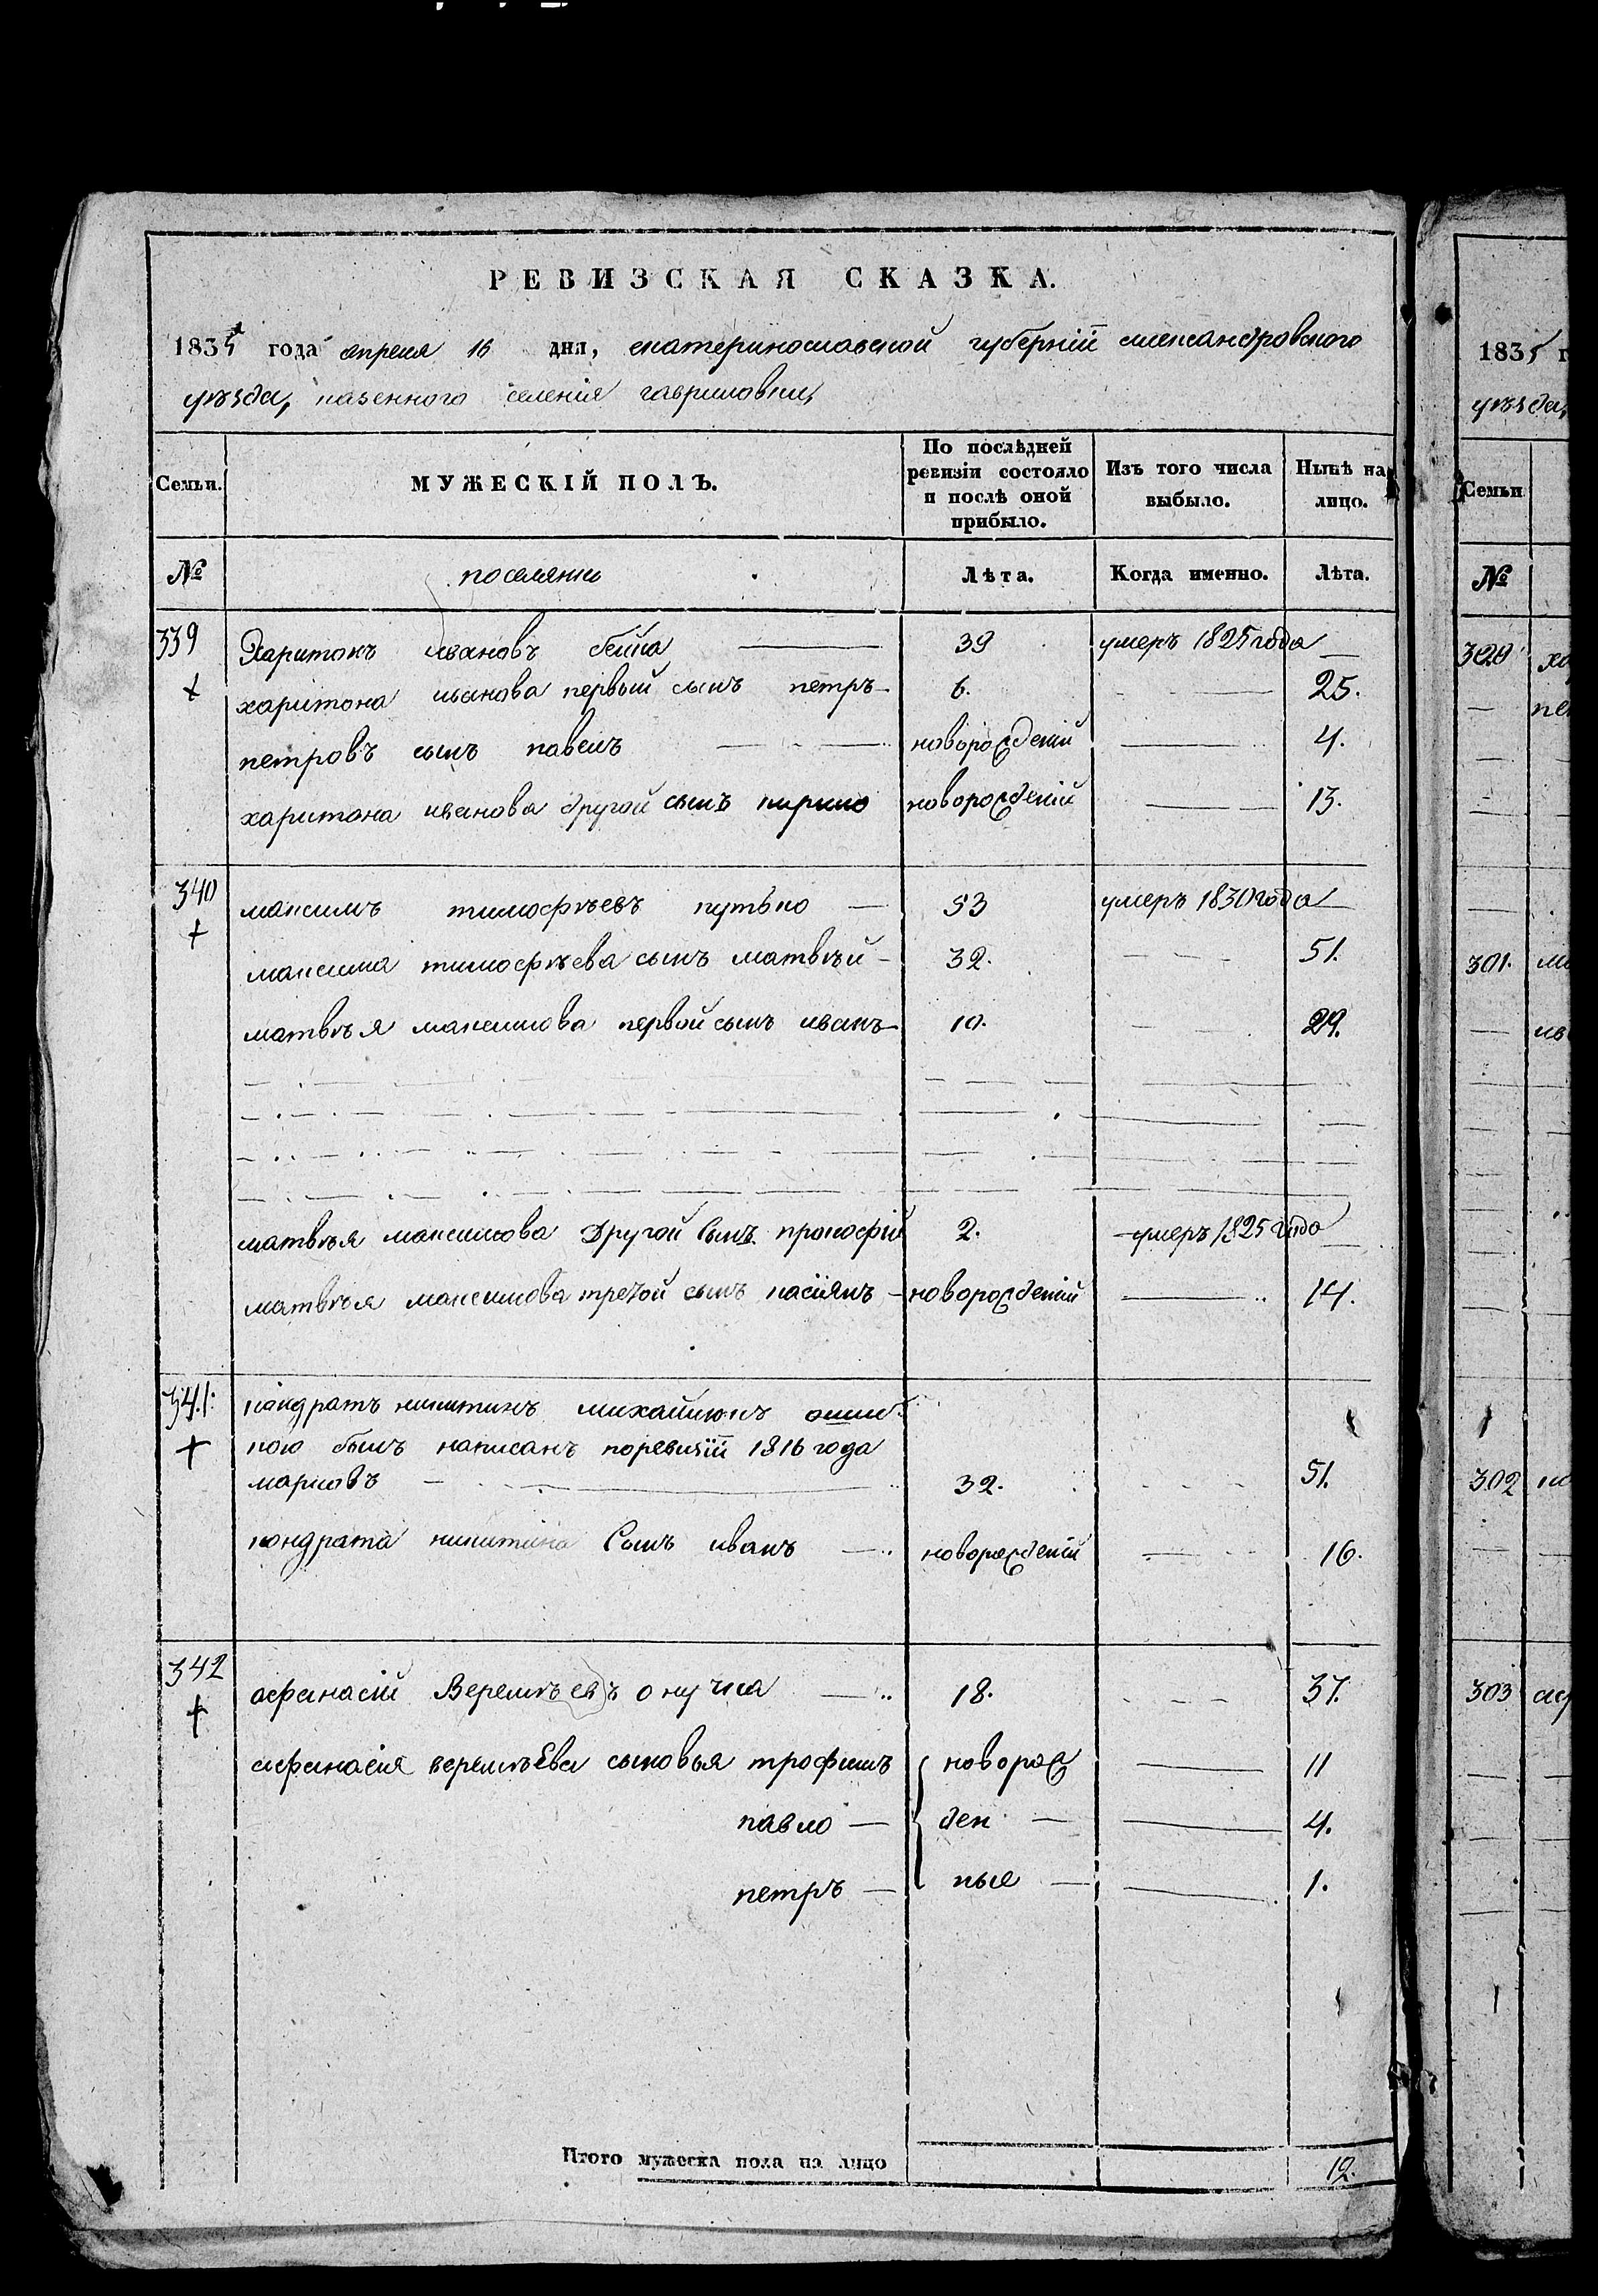 РЕВИЗСКАЯ СКАЗКА.
1835 года апреля 16 дня, екатеринославской губерніи александровского
уѣзда, казенного селенія гавриловки,
Семьи. МУЖЕСКІЙ ПОЛЪ. По послѣдней ревизіи состояло и послѣ оной прибыло. Изъ того числа выбыло. Нынѣ на лицо.
№ поселянъ Лѣта. Когда именно. Лѣта.
339 Харитонъ ивановъ 39 умеръ 1825 года
харитона иванова первый сынъ петръ 6. 25.
петровъ сынъ павелъ новорожденій 4.
харитона иванова другой сынъ кирило новорожденій 13.
340 максимъ тимофѣевъ путько 53 умеръ 1830 года
максима тимофѣева сынъ матвѣй 32. 51.
матвѣя максимова первой сынъ иванъ 10. 29.
матвѣя максимова Другой Сынъ прокофій 2. умеръ 1825 года
матвѣя максимова третой сынъ касіянъ новорожденій 14.
341. кондратъ никитинъ михайлюкъ ошиб
кою былъ написанъ поревизіи 1816 года
марковъ 32. 51.
кондрата никитина Сынъ иванъ новорожденій 16.
342 афанасій Веремѣевъ онучка 18. 37.
афанасія веремѣева сыновья трофимъ новорож 11
павло ден 4.
петръ ные 1.
Итого мужеска пола на лицо 12.
1835 г
уѣзда,
Семьи
№
300 ха
пе
301. ма
ив
302 ко
303 аф